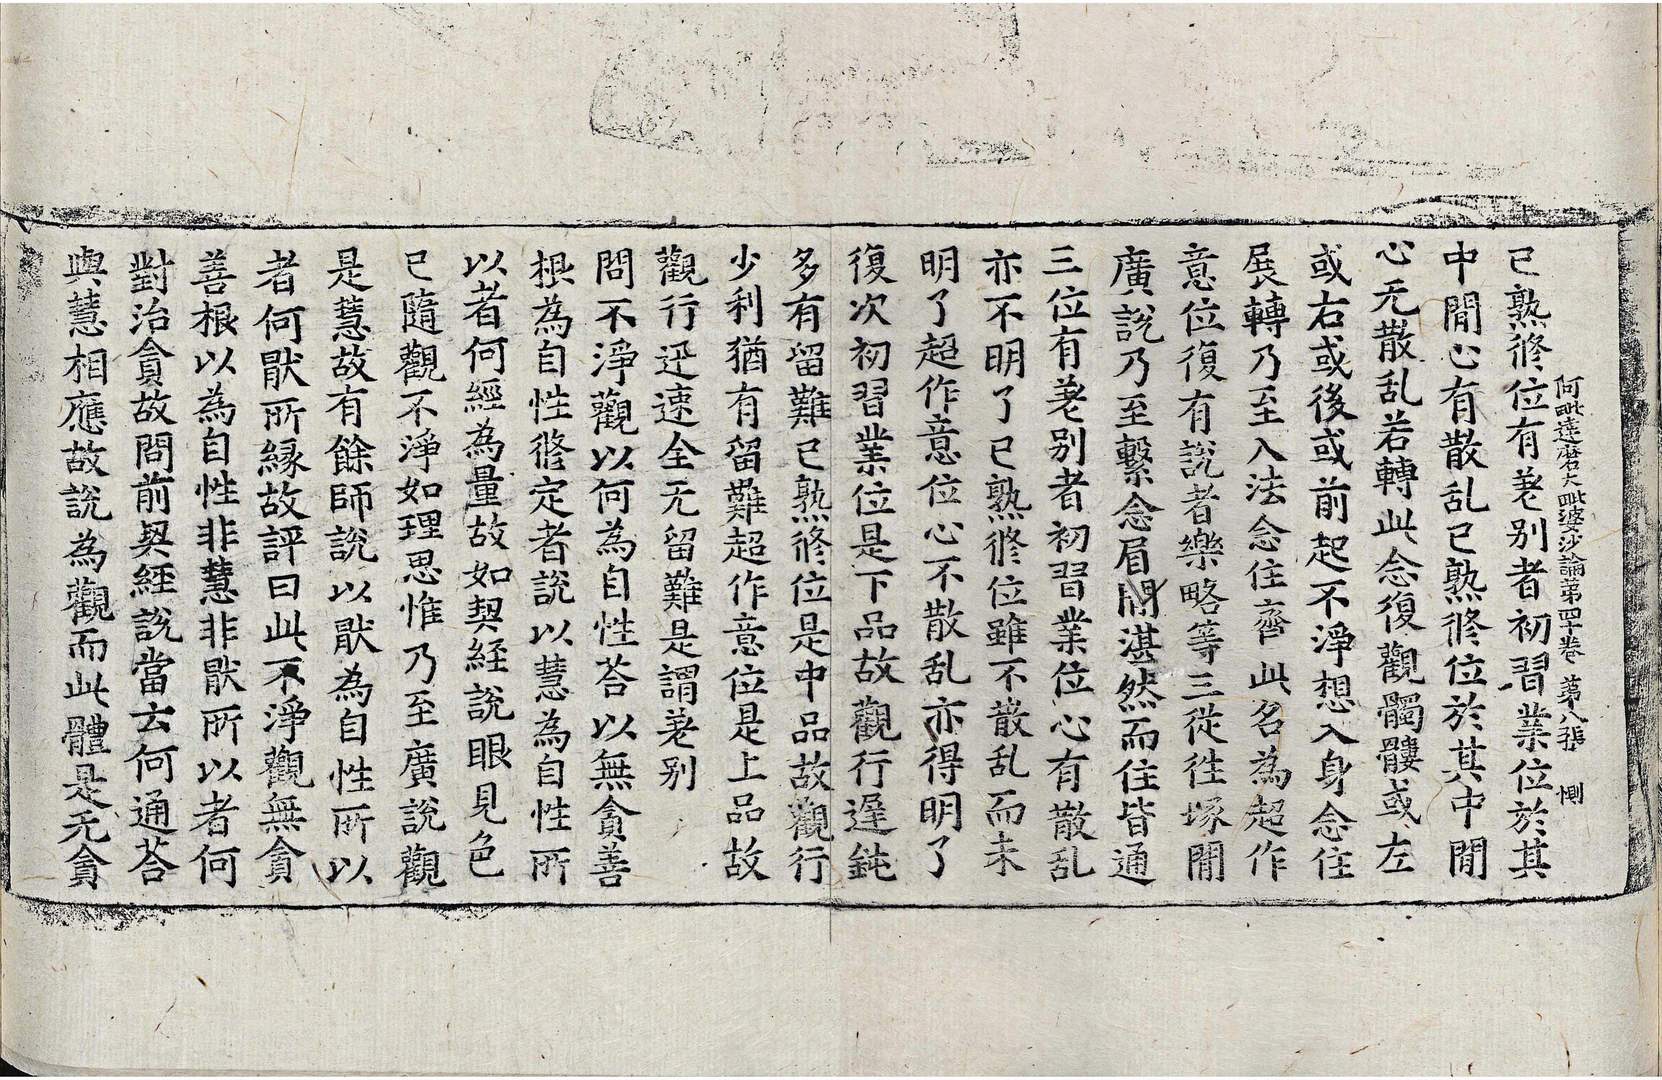 阿毗達磨大毗婆沙論第四十卷　第八張　惻
已熟修位有差别者初習業位於其
中閒心有散乱已熟修位於其中閒
心无散乱若轉此念復觀髑髏或左
或右或後或前起不淨想入身念住
展轉乃至入法念住齊此名為超作
意位復有說者樂略等三從徃塚閒
廣說乃至繫念眉閒湛然而住皆通
三位有差别者初習業位心有散乱
亦不明了已熟修位雖不散乱而未
明了超作意位心不散乱亦得明了
復次初習業位是下品故觀行遲鈍
多有留難已熟修位是中品故觀行
少利猶有留難超作意位是上品故
觀行迅速全无留難是謂差别
問不淨觀以何為自性荅以無貪善
根為自性修定者說以慧為自性所
以者何經為量故如契經說眼見色
已隨觀不淨如理思惟乃至廣說觀
是慧故有餘師說以猒為自性所以
者何猒所緣故評曰此不淨觀無貪
善根以為自性非慧非猒所以者何
對治貪故問前契經說當云何通荅
與慧相應故說為觀而此體是无貪